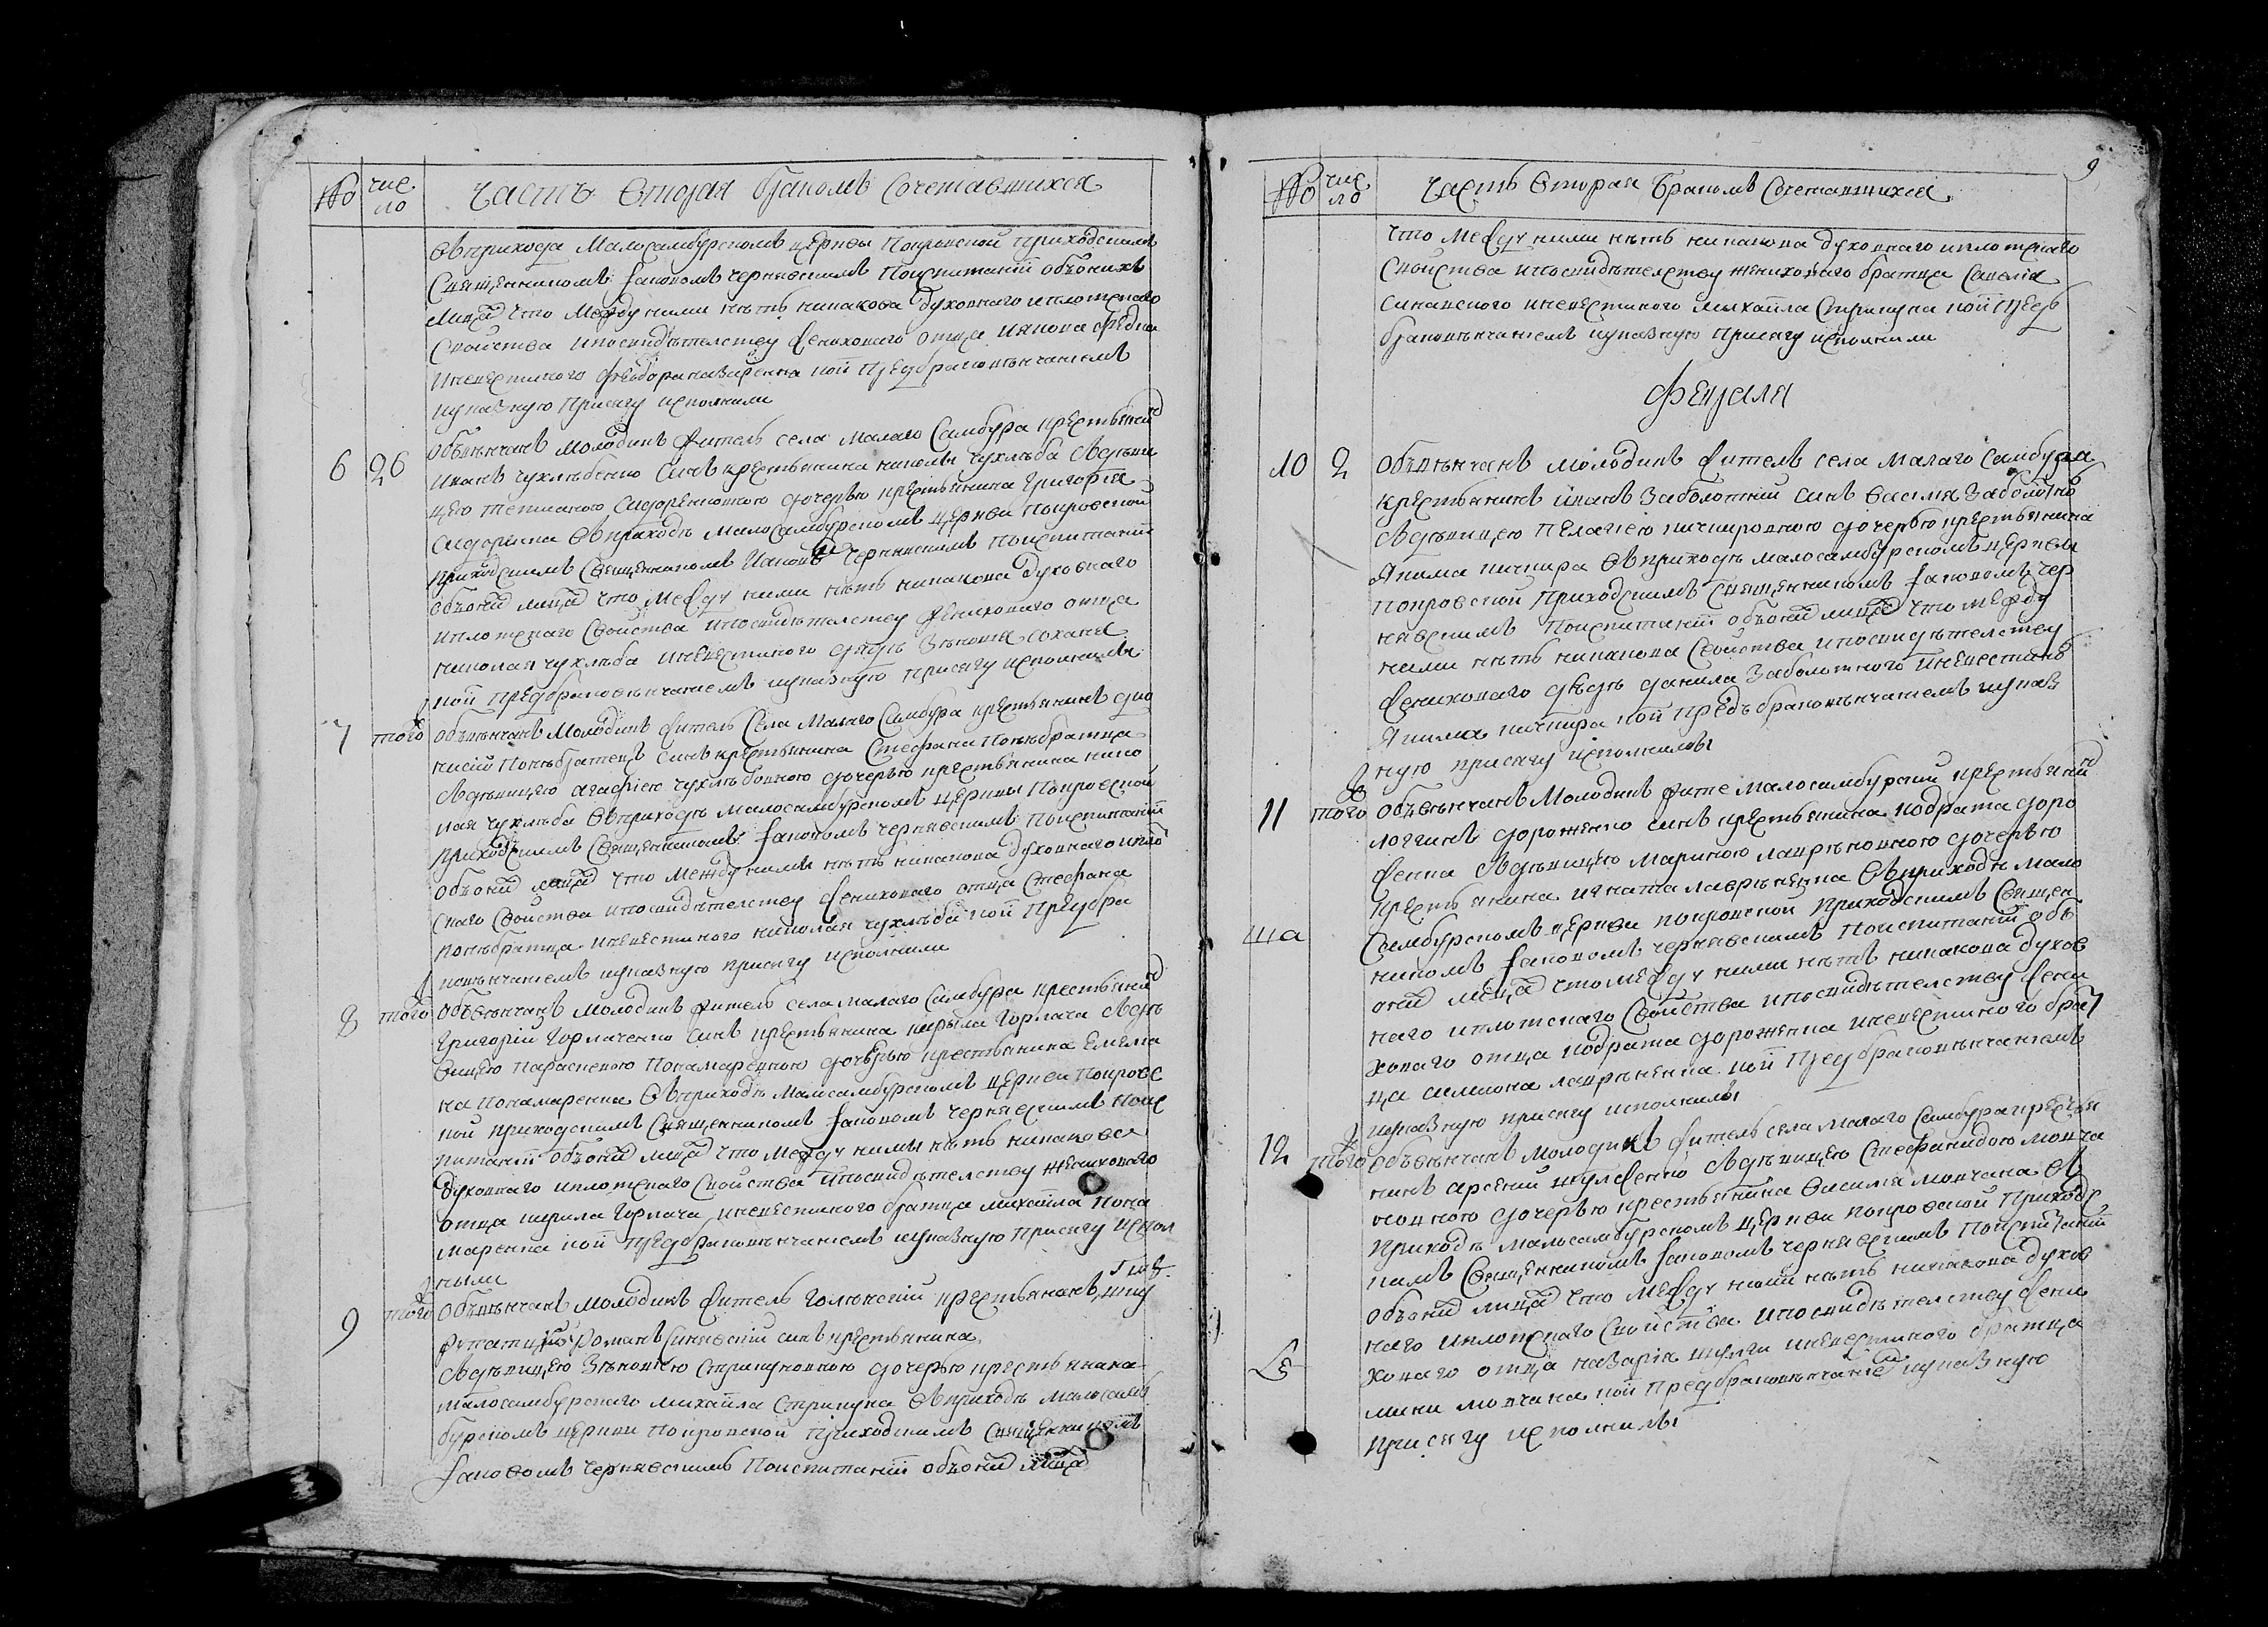 № число Часть вторая бракомъ сочетавшихся
въ прихода Малосамбурскомъ церкви Покровской приходскимъ
священникомъ Іаковомъ Чернявскимъ поиспитаніи объонихъ
лицахъ что между ними нѣтъ никакова духовнаго и плотскаго
свойства и посвидѣтелству жениховаго отца
и невестиного кой предбраковѣнчаніемъ
куказную присягу исполнили
6 26 Объвѣнчанъ молодикъ житель села Малаго Самбура крестьянинъ
Иванъ Чухлѣбенко синъ крестьянина Николы Чухлѣба здѣви
цею Сидоренковною дочерью крестьянина Григорія
Сидоренка въ приходѣ Малосамбурскомъ церкви Покровской
приходскимъ священникомъ Иаковомъ Чернявскимъ поиспитаніи
объонихъ лицахъ что между ними нѣтъ никакова духовнаго
и плотскаго свойства и посвидѣтелству жениховаго отца
Николая Чухлѣба и невестиного
кой предбраковѣнчаніемъ куказную присягу исполнили
7 того объвѣнчанъ молодикъ житель села Малаго Самбура крестьянинъ Дио
нисій Понѣбратецъ синъ крестьянина Стефана Понѣбратца
здѣвицею Агафіею Чухлѣбовною дочерью крестьянина Нико
лая Чухлѣба въ приходѣ Малосамбурскомъ церкви Покровской
приходскимъ священникомъ Іаковомъ Чернявскимъ поиспитаніи
объонихъ лицахъ что между ними нѣтъ никакова духовнаго и плот
скаго свойства и посвидѣтелству жениховаго отца Стефана
Понѣбратца и невестиного Николая Чухлѣба кой предбра
ковѣнчаніемъ куказную присягу исполнили
8 того объвѣнчанъ молодикъ житель села Малаго Самбура крестьянинъ
Григорій Горпаченко синъ крестьянина Кирыла Горпача здѣ
вицею Параскевою Понамаревною дочерью крестьянина Емелиа
на Понамаренка въ приходѣ Малосамбурскомъ церкви Покровс
кой приходскимъ священникомъ Іаковомъ Чернявскимъ поис
питаніи объонихъ лицахъ что между ними нѣтъ никакова
духовнаго и плотскаго свойства и посвидѣтелству жениховаго
отца Кирила Горпача и невестиного братца Михайла Пона
маренка кой предбраковѣнчаніемъ куказную присягу испол
нили
9 того объвѣнчанъ молодикъ житель Голѣнскій крестьянинъ
Романъ Синявскій синъ крестьянина
здѣвицею Зѣновіею Стрикуновною дочерью крестьянина
Малосамбурскаго Михайла Стрикуна въ приходѣ Малосам
бурскомъ церкви Покровской приходскимъ священникомъ
Іаковомъ Чернявскимъ поиспитаніи объонихъ лицахъ
9
№ число Часть вторая бракомъ сочетавшихся
что между ними нѣтъ никакова духовнаго и плотскаго
свойства и посвидѣтелству жениховаго братца Савелія
Синявского и невестиного Михайла Стрикуна кой предъ
браковѣнчаніемъ куказную присягу исполнили
Февраля
10 2 Объвѣнчанъ молодикъ житель села Малаго Самбура
крестьянинъ Иванъ Заболотній синъ Василія Заболотно
здѣвицею Пелагіею Кичкировною дочерью крестьянина
Якима Кичкира въ приходѣ Малосамбурскомъ церкви
Покровской приходскимъ священникомъ Іаковомъ Чер
нявскимъ поиспитаніи объонихъ лицахъ что между
ними нѣтъ никакова свойства и посвидѣтелству
жениховаго дѣдѣ Данила Заболотного и невестино
Якима Кичкира кой предъбраковѣнчаніемъ куказ
ную присягу исполнилы
11 того объвѣнчанъ молодикъ жите Малосамбурскій крестьянинъ
Логгинъ Дороженко синъ крестьянина Кодрата Доро
женка здѣвицею Мариною Лаврѣновною дочерью
крестьянина Игната Лаврѣненка въ приходѣ Мало
Самбурскомъ церкви Покровской приходскимъ священ
никомъ Іаковомъ Чернявскимъ поиспитаніи объ
онихъ лицахъ что между ними нѣтъ никакова духов
наго и плотскаго свойства и посвидѣтелству жени
ховаго отца Кодрата Дороженка и невестиного брат
ца Симиона Лаврѣненка кой предбраковѣнчаніемъ
куказную присягу исполнилы
12 того объвѣнчанъ молодикъ житель села Малаго Самбура крестья
нинъ Арсеній Шулженко здѣвицею Стефанидою Мовча
новною дочерью крестьянина Василія Мовчана въ
приходѣ Малосамбурскомъ церкви Покровской приходс
кимъ священникомъ Іаковомъ Чернявскимъ поиспитаніи
объонихъ лицахъ что между ними нѣтъ никакова духов
наго и плотскаго свойства и посвидѣтелству жени
ховаго отца Назарія Шулги и невестиного братца
Мини Мовчана кой предбраковѣнчаніемъ куказную
присягу исполнилы